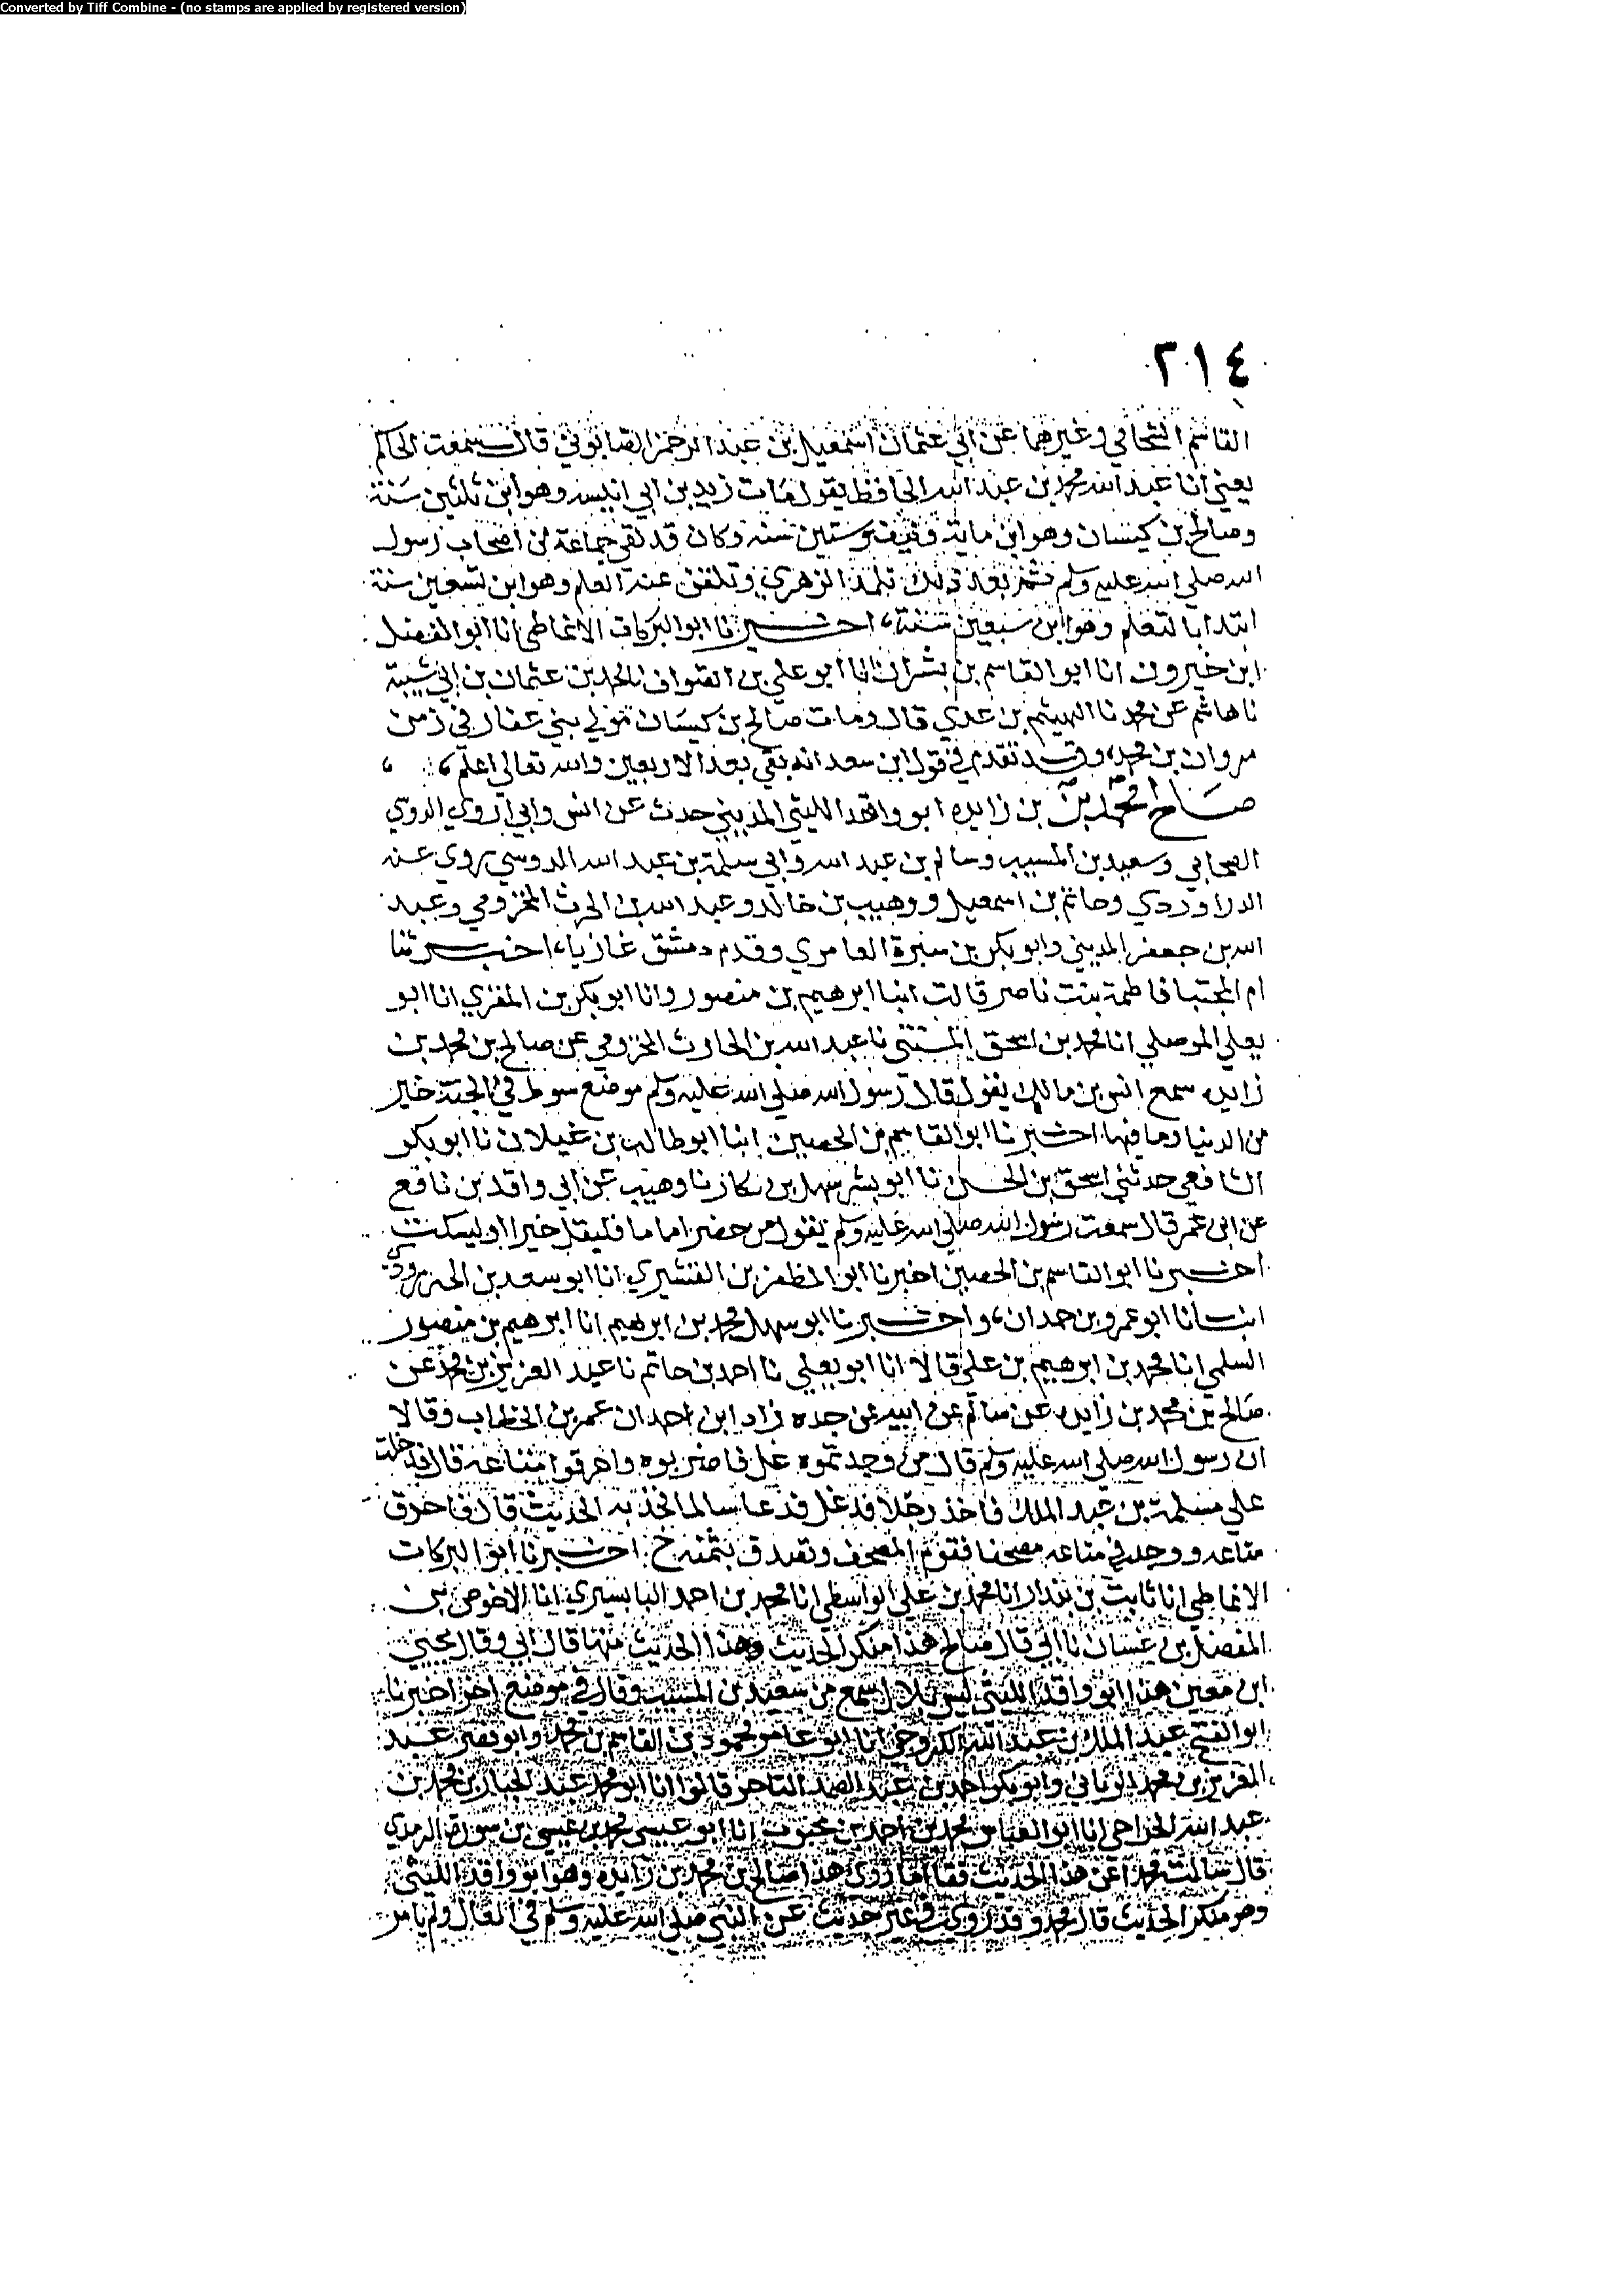 Converted by Tiff Combine - (no stamps are applied by registered version)
٢١٤
القاسم الشحامي وغيرهما عن ابي عثمان اسمعيل بن عبد الرحمن الصابوني قال سمعت الحاكم
يعني انا عبد الله محمد بن عبد الله الحافظ يقول مات زيد بن ابي انيسه وهو ابن ثلثين سنة
وصالح بن كيسان وهو ابن ماية ونيف وستين سنه وكان قد لقي جماعة من اصحاب رسول
الله صلى الله عليه وسلم ثم بعد ذلك تلمذ الزهري وتلقن عنه العلم وهو ابن تسعين سنة
ابتدا بالتعلم وهو ابن سبعين سنة، اخبرنا ابو البركات الانماطي انا ابو الفضل
ابن خيرون انا ابو القاسم بن بشران انا ابو علي بن الصواف نا محمد بن عثمان بن ابي شيبة
نا هاشم عن محمد نا الهيثم بن عدي قال ومات صالح بن كيسان مولي بني غفار في زمن
مروان بن محمد، وقد تقدم في قول ابن سعد انه بقي بعد الاربعين والله تعالى اعلم،
صالح بن محمد بن زايده ابو واقد الليثي المديني حدث عن انس وابي اروي الدوسي
الصحابي وسعيد بن المسيب وسالم بن عبد الله وابي سلمة بن عبد الله الدوسي روي عنه
الدراوردي وحاتم بن اسمعيل ووهيب بن خالد وعبد الله بن الحرث المخزومي وعبد
الله بن جعفر المديني وابو بكر بن سبرة العامري وقدم دمشق غازيا، اخبرتنا
ام المجتبا فاطمة بنت ناصر قالت انبا ابرهيم بن منصور وانا ابو بكر بن المقري انا ابو
يعلي الموصلي انا محمد بن اسحق المسيبي نا عبد الله بن الحارث المخزومي عن صالح بن محمد بن
زايده سمع انس بن مالك يقول قال رسول الله صلى الله عليه وسلم موضع سوط في الجنة خير
من الدنيا وما فيها، اخبرنا ابو القاسم بن الحصين انبا ابو طالب بن غيلان نا ابو بكر
الشافعي حدثني اسحق بن الحسن نا ابو بشر سهل بن بكار نا وهيب عن ابي واقد بن نافع
عن ابن عمر قال سمعت رسول الله صلى الله عليه وسلم يقول من حضر اماما فليقل خيرا او ليسكت
اخبرنا ابو القاسم بن الحصين اخبرنا ابو المظفر بن القشيري انا ابو سعد بن الجنزرودي
انبانا ابو عمرو بن حمدان، واخبرنا ابو سهل محمد بن ابرهيم انا ابرهيم بن منصور
السلمي انا محمد بن ابرهيم بن علي قالا انا ابو يعلي نا احمد بن حاتم نا عبد العزيز بن محمد عن
صالح بن محمد بن زايده عن سالم عن ابيه عن جده زاد ابن احمد ان عمر بن الخطاب وقالا
ان رسول الله صلى الله عليه وسلم قال من وجدتموه غل فاضربوه واحرقوا متاعه قال فدخلت
علي مسلمة بن عبد الملك فاخذ رجلا قد غل فدعا سالما فحدثه الحديث قال فاحرق
متاعه ووجد في متاعه مصحفا فقوم المصحف وتصدق بثمنه خ اخبرنا ابو البركات
الانماطي انا ثابت بن بندار انا محمد بن علي الواسطي انا محمد بن احمد البابسيري انا الاحوص بن
المفضل بن غسان نا ابي قال صالح هذا منكر الحديث وهذا الحديث منها قال ابي وقال يحيى
ابن معين هذا ابو واقد الليثي ليس بذاك سمع من سعيد بن المسيب وقال في موضع اخر اخبرنا
ابو الفتح عبد الملك بن عبد الله الكروخي انا ابو عامر محمود بن القاسم بن محمد وابو نصر عبد
العزيز بن محمد الترياقي وابو بكر احمد بن عبد الصمد التاجر قالوا انا ابو محمد عبد الجبار بن محمد بن
عبد الله الجراحي انا ابو العباس محمد بن احمد بن محبوب انا ابو عيسى محمد بن عيسى بن سورة الترمذي
قال سالت محمدا عن هذا الحديث فقال انما روي هذا صالح بن محمد بن زايده وهو ابو واقد الليثي
وهو منكر الحديث قال محمد وقد روي في غير حديث عن النبي صلى الله عليه وسلم في الغال ولم يامر